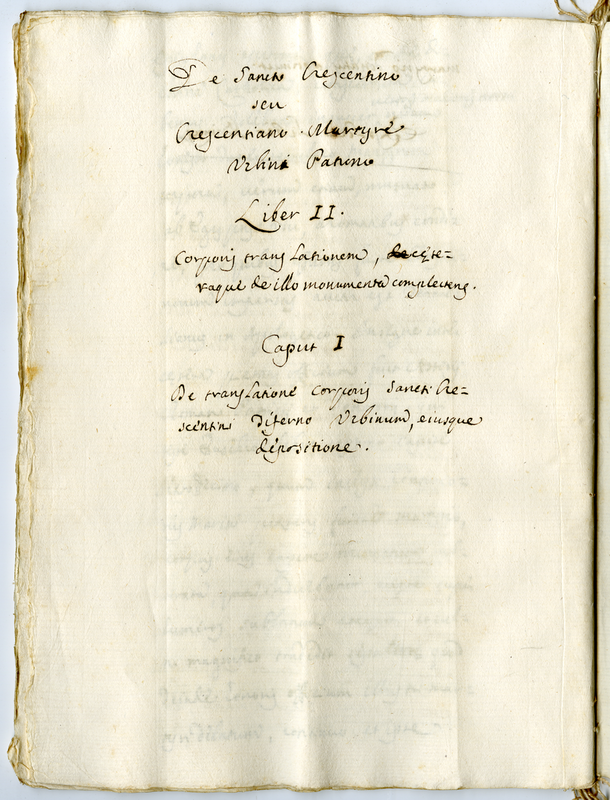 De Sancto Crescentino
seu
Crescentiano Martyre
Urbini Patrono
Liber II.
Corporis translationem, cęte-
raque de illo monumenta complectens.
Caput I
De translatione Corporis Sancti Cre-
scentini Tiferno Urbinum, eiusque
depositione.